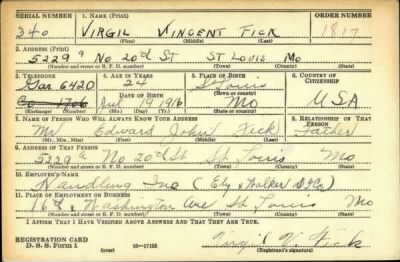 SERIAL NUMBER 1. NAME (Print) ORDER NUMBER
340 VIRGIL VINCENT FICK 1817
(First) (Middle) (Last)
2. ADDRESS (Print)
5229a No 20th ST ST LOUIS Mo
(Number and street or R. F. D. number) (Town) (County) (State)
3. TELEPHONE 4. AGE IN YEARS 5. PLACE OF BIRTH 6. COUNTRY OF CITIZENSHIP
Gar 6420 24 St Louis
Co 1706 DATE OF BIRTH (Town or county) USA
Jul 19 1916 Mo
(Exchange) (Number) (Mo.) (Day) (Yr.) (State or country)
7. NAME OF PERSON WHO WILL ALWAYS KNOW YOUR ADDRESS 8. RELATIONSHIP OF THAT PERSON
Mr Edward John Fick Father
(Mr., Mrs., Miss) (First) (Middle) (Last)
9. ADDRESS OF THAT PERSON
5229a No 20th St St Louis Mo
(Number and street or R. F. D. number) (Town) (County) (State)
10. EMPLOYER'S NAME
Handling Inc (Ely & Walker D G Co)
11. PLACE OF EMPLOYMENT OR BUSINESS
16th & Washington Ave St Louis Mo
(Number and street or R. F. D. number) (Town) (County) (State)
I AFFIRM THAT I HAVE VERIFIED ABOVE ANSWERS AND THAT THEY ARE TRUE.
REGISTRATION CARD
D. S. S. Form 1 (over) 16—17105 Virgil V. Fick
(Registrant's signature)